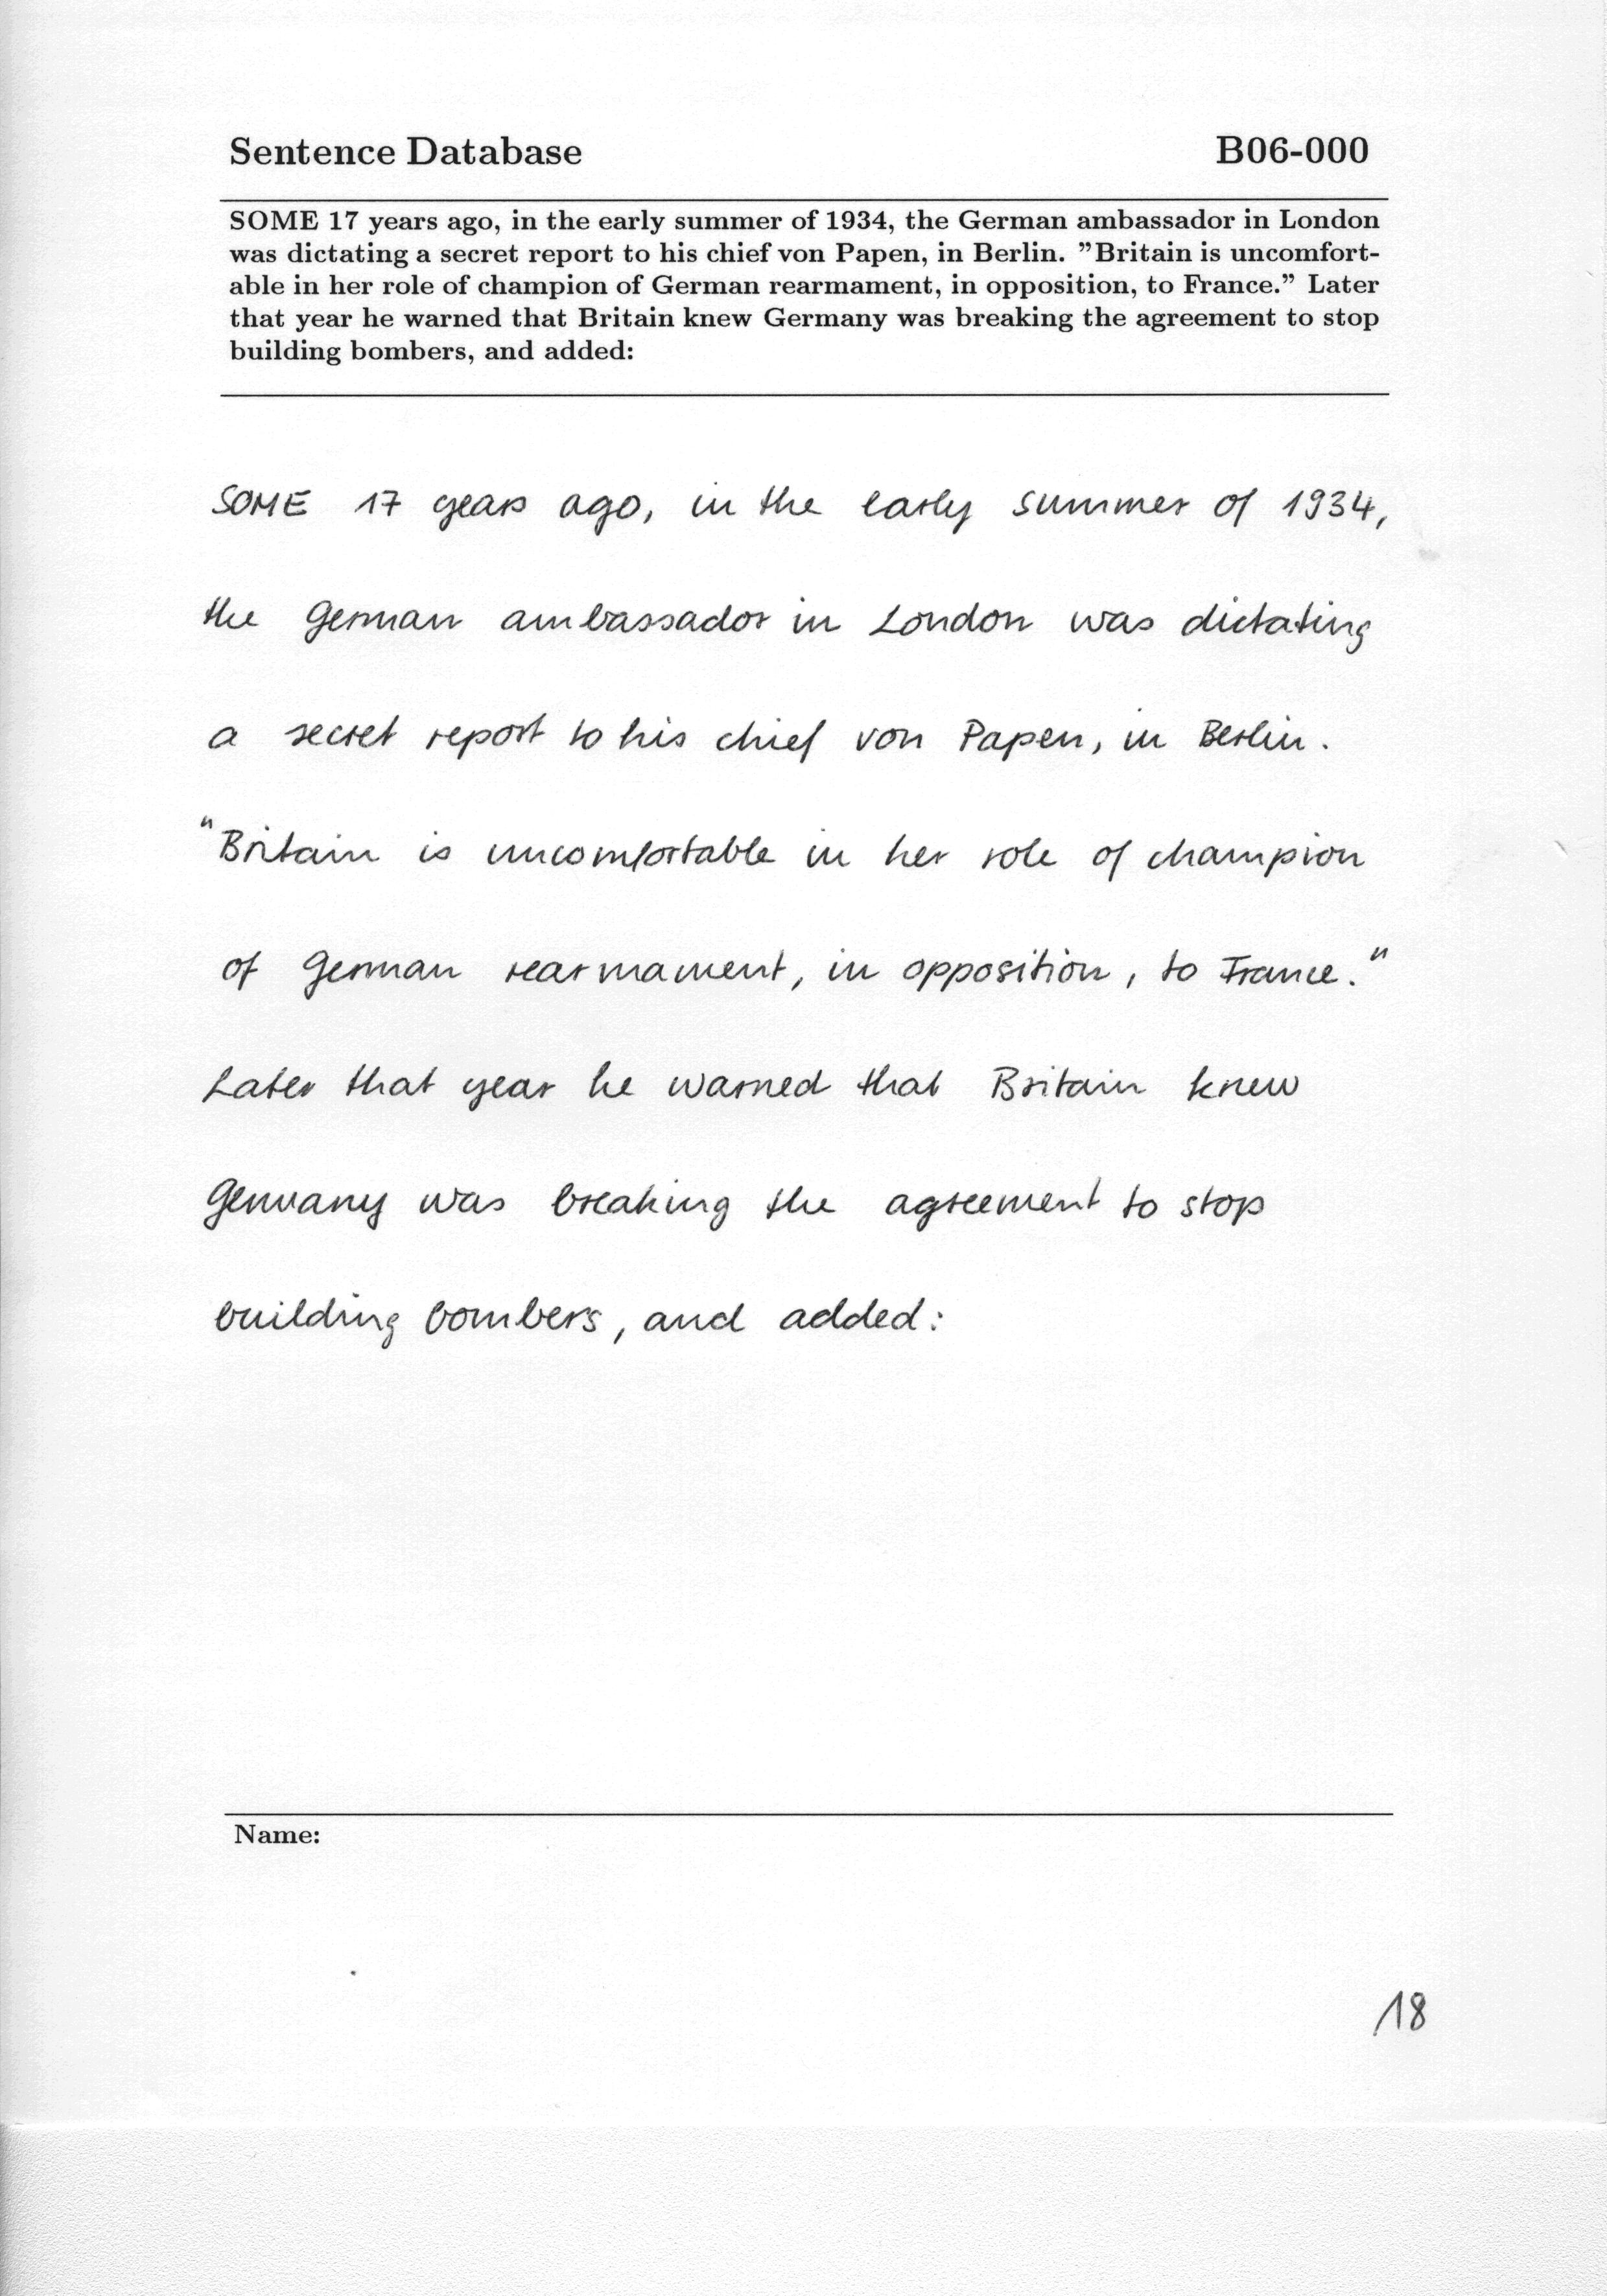 Sentence Database B06-000
SOME 17 years ago, in the early summer of 1934, the German ambassador in London
was dictating a secret report to his chief von Papen, in Berlin. ”Britain is uncomfort-
able in her role of champion of German rearmament, in opposition, to France.” Later
that year he warned that Britain knew Germany was breaking the agreement to stop
building bombers, and added:
SOME 17 years ago, in the early summer of 1934,
the German ambassador in London was dictating
a secret report to his chief von Papen, in Berlin.
"Britain is uncomfortable in her role of champion
of German rearmament, in opposition, to France."
Later that year he warned that Britain knew
Germany was breaking the agreement to stop
building bombers, and added:
Name:
18